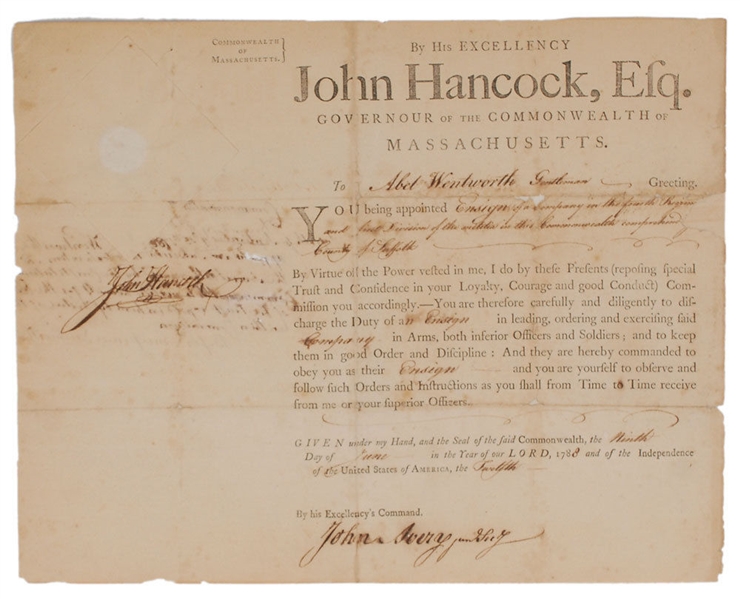 COMMONWEALTH
OF
MASSACHUSETTS.
By His EXCELLENCY
John Hancock, Eſq.
GOVERNOUR OF THE COMMONWEALTH OF
MASSACHUSETTS.
To Abel Wentworth Gentleman Greeting.
YOU being appointed Ensign of a Company in the fourth Regim
and first Division of the militia in this Commonwealth comprehend
County of Suffolk
By Virtue of the Power veſted in me, I do by theſe Preſents (repoſing ſpecial
Truſt and Confidence in your Loyalty, Courage and good Conduct) Com-
miſſion you accordingly.—You are therefore carefully and diligently to diſ-
charge the Duty of an Ensign in leading, ordering and exerciſing ſaid
Company in Arms, both inferior Officers and Soldiers; and to keep
them in good Order and Diſcipline: And they are hereby commanded to
obey you as their Ensign and you are yourſelf to obſerve and
follow ſuch Orders and Inſtructions as you ſhall from Time to Time receive
from me or your ſuperior Officers.
John Hancock
GIVEN under my Hand, and the Seal of the ſaid Commonwealth, the Ninth
Day of June in the Year of our LORD, 1788 and of the Independence
of the United States of AMERICA, the Twelfth
By his Excellency's Command.
John Avery jun Secy